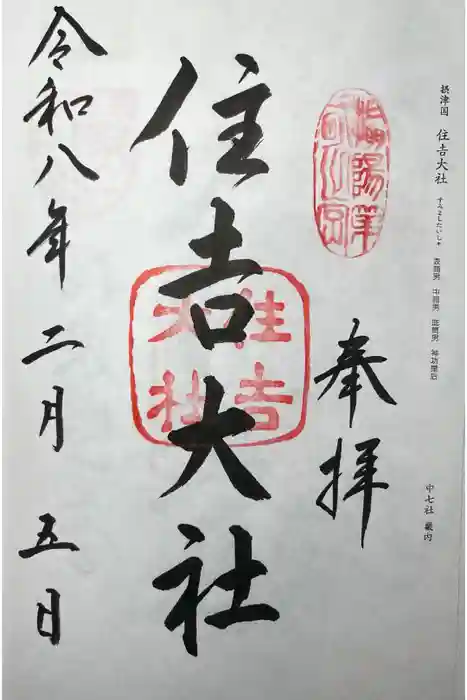 摂津国 住吉大社 すみよしたいしゃ 底筒男 中筒男 表筒男 神功皇后
中七社 畿内
奉拝
住吉大社
住吉
大社
令和八年二月五日